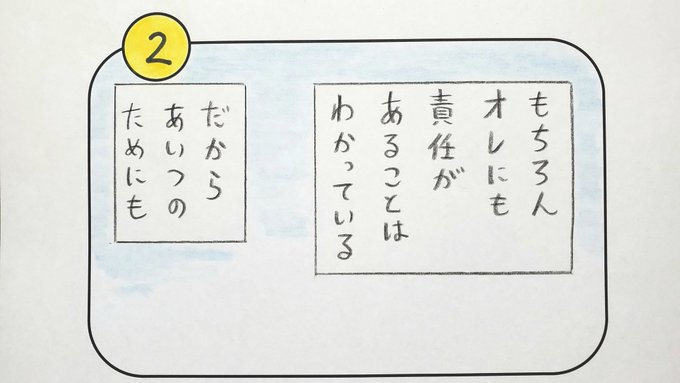 2
もちろん
オレにも
責任が
あることは
わかっている
だから
あいつの
ためにも